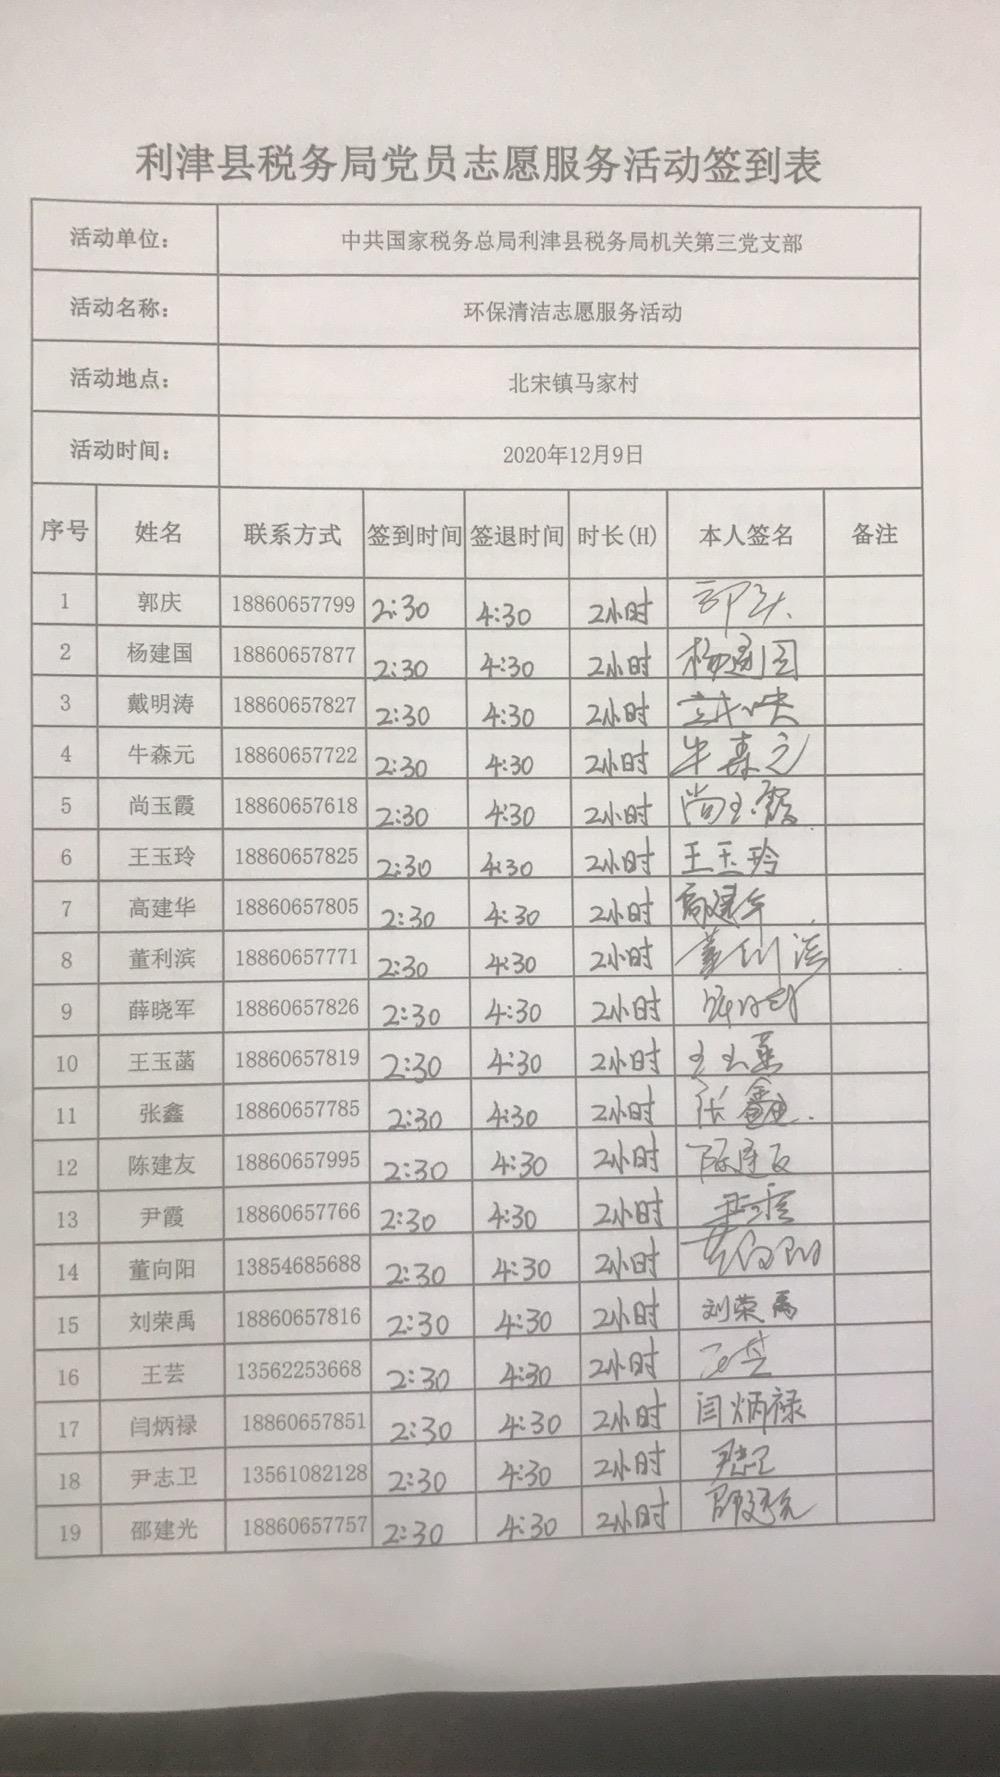 利津县税务局党员志愿服务活动签到表
活动单位： 中共国家税务总局利津县税务局机关第三党支部
活动名称： 环保清洁志愿服务活动
活动地点： 北宋镇马家村
活动时间： 2020年12月9日
序号 姓名 联系方式 签到时间 签退时间 时长(H) 本人签名 备注
1 郭庆 18860657799 2:30 4:30 2小时
2 杨建国 18860657877 2:30 4:30 2小时 杨建国
3 戴明涛 18860657827 2:30 4:30 2小时
4 牛森元 18860657722 2:30 4:30 2小时 牛森元
5 尚玉霞 18860657618 2:30 4:30 2小时 尚玉霞
6 王玉玲 18860657825 2:30 4:30 2小时 王玉玲
7 高建华 18860657805 2:30 4:30 2小时 高建华
8 董利滨 18860657771 2:30 4:30 2小时 董利滨
9 薛晓军 18860657826 2:30 4:30 2小时
10 王玉菡 18860657819 2:30 4:30 2小时
11 张鑫 18860657785 2:30 4:30 2小时 张鑫
12 陈建友 18860657995 2:30 4:30 2小时 陈建友
13 尹霞 18860657766 2:30 4:30 2小时 尹霞
14 董向阳 13854685688 2:30 4:30 2小时 董向阳
15 刘荣禹 18860657816 2:30 4:30 2小时 刘荣禹
16 王芸 13562253668 2:30 4:30 2小时 王芸
17 闫炳禄 18860657851 2:30 4:30 2小时 闫炳禄
18 尹志卫 13561082128 2:30 4:30 2小时 尹志卫
19 邵建光 18860657757 2:30 4:30 2小时 邵建光